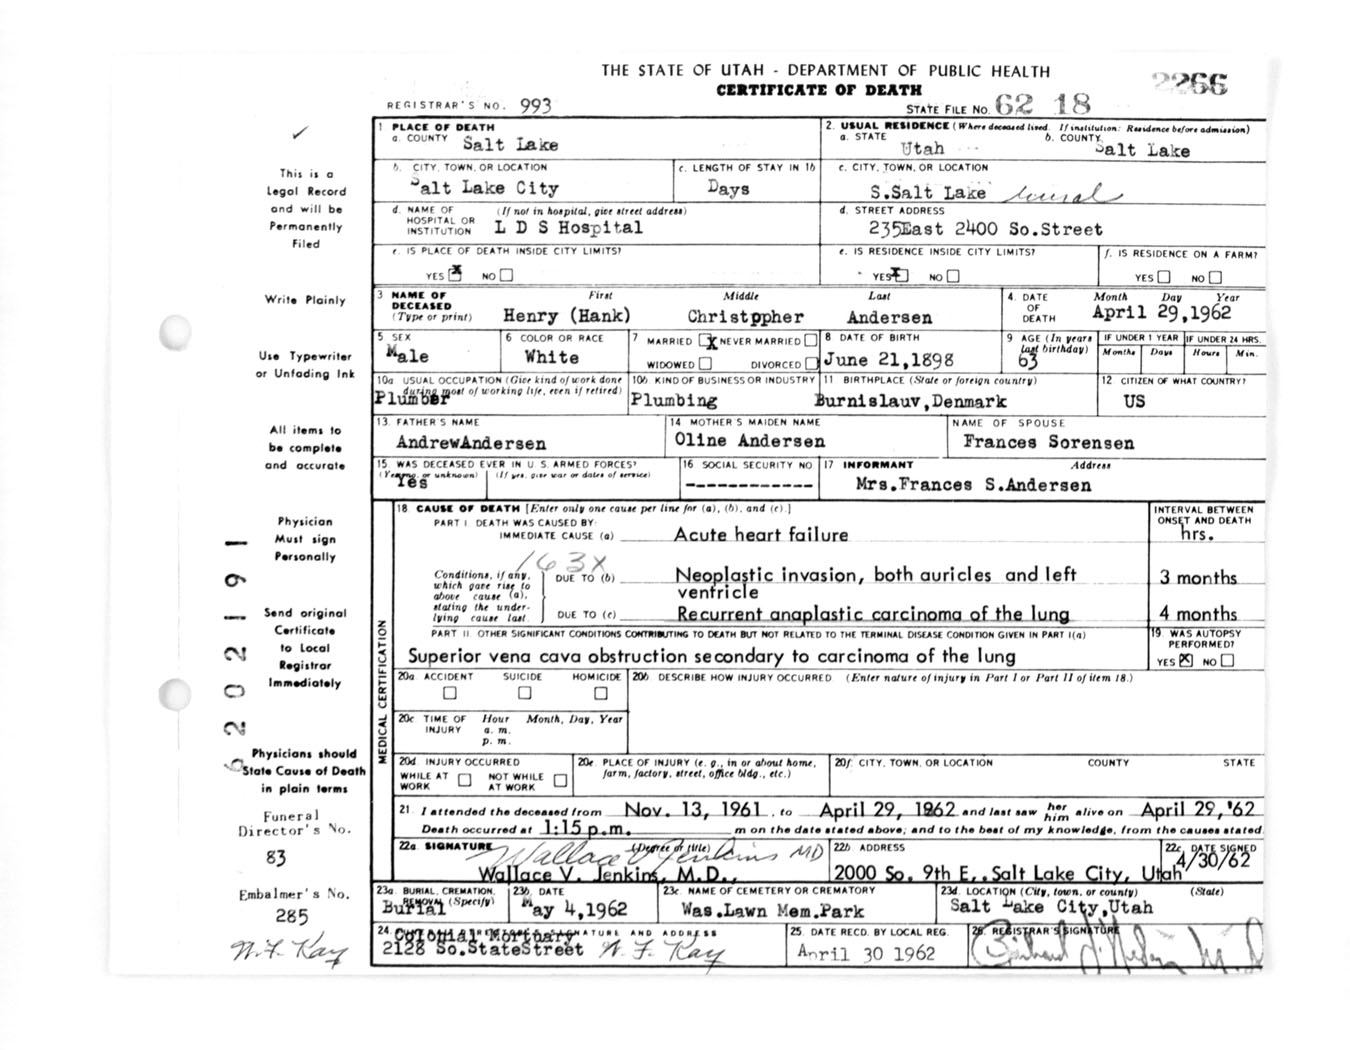 THE STATE OF UTAH - DEPARTMENT OF PUBLIC HEALTH
2266
CERTIFICATE OF DEATH
REGISTRAR'S NO. 993
STATE FILE NO. 62 18
This is a
Legal Record
and will be
Permanently
Filed
Write Plainly
Use Typewriter
or Unfading Ink
All items to
be complete
and accurate
Physician
Must sign
Personally
Send original
Certificate
to Local
Registrar
Immediately
Physicians should
State Cause of Death
in plain terms
Funeral
Director's No.
83
Embalmer's No.
285
W.F. Kay
1 PLACE OF DEATH
a. COUNTY Salt Lake
2. USUAL RESIDENCE (Where deceased lived. If institution: Residence before admission)
a. STATE Utah b. COUNTY Salt Lake
b. CITY, TOWN, OR LOCATION
Salt Lake City
c. LENGTH OF STAY IN 1b
Days
c. CITY, TOWN, OR LOCATION
S.Salt Lake rural
d. NAME OF HOSPITAL OR INSTITUTION (If not in hospital, give street address)
L D S Hospital
d. STREET ADDRESS
235East 2400 So.Street
e. IS PLACE OF DEATH INSIDE CITY LIMITS?
YES X NO
e. IS RESIDENCE INSIDE CITY LIMITS?
YES X NO
f. IS RESIDENCE ON A FARM?
YES NO
3 NAME OF DECEASED (Type or print) First Middle Last
Henry (Hank) Christppher Andersen
4. DATE OF DEATH Month Day Year
April 29,1962
5 SEX
Male
6 COLOR OR RACE
White
7 MARRIED X NEVER MARRIED
WIDOWED DIVORCED
8 DATE OF BIRTH
June 21,1898
9 AGE (In years last birthday)
63
IF UNDER 1 YEAR
Months Days
IF UNDER 24 HRS.
Hours Min.
10a USUAL OCCUPATION (Give kind of work done during most of working life, even if retired)
Plumber
10b. KIND OF BUSINESS OR INDUSTRY
Plumbing
11 BIRTHPLACE (State or foreign country)
Burnislauv,Denmark
12 CITIZEN OF WHAT COUNTRY?
US
13. FATHER'S NAME
AndrewAndersen
14 MOTHER'S MAIDEN NAME
Oline Andersen
NAME OF SPOUSE
Frances Sorensen
15. WAS DECEASED EVER IN U.S. ARMED FORCES?
(Yes, no, or unknown) (If yes, give war or dates of service)
Yes
16 SOCIAL SECURITY NO
------------
17 INFORMANT Address
Mrs.Frances S.Andersen
MEDICAL CERTIFICATION
18 CAUSE OF DEATH [Enter only one cause per line for (a), (b), and (c).]
PART I. DEATH WAS CAUSED BY:
IMMEDIATE CAUSE (a) Acute heart failure
INTERVAL BETWEEN ONSET AND DEATH
hrs.
163X
Conditions, if any, which gave rise to above cause (a), stating the underlying cause last.
DUE TO (b) Neoplastic invasion, both auricles and left
ventricle
3 months
DUE TO (c) Recurrent anaplastic carcinoma of the lung
4 months
PART II. OTHER SIGNIFICANT CONDITIONS CONTRIBUTING TO DEATH BUT NOT RELATED TO THE TERMINAL DISEASE CONDITION GIVEN IN PART I(a)
Superior vena cava obstruction secondary to carcinoma of the lung
19. WAS AUTOPSY PERFORMED?
YES X NO
20a ACCIDENT SUICIDE HOMICIDE
20b DESCRIBE HOW INJURY OCCURRED (Enter nature of injury in Part I or Part II of item 18.)
20c TIME OF INJURY Hour Month, Day, Year
a. m.
p. m.
20d. INJURY OCCURRED
WHILE AT WORK NOT WHILE AT WORK
20e. PLACE OF INJURY (e. g., in or about home, farm, factory, street, office bldg., etc.)
20f. CITY, TOWN, OR LOCATION COUNTY STATE
21. I attended the deceased from Nov. 13, 1961, to April 29, 1962 and last saw her him alive on April 29,'62
Death occurred at 1:15 p.m. m on the date stated above; and to the best of my knowledge, from the causes stated.
22a. SIGNATURE (Degree or title)
Wallace V Jenkins MD
Wallace V. Jenkins, M.D.,
22b ADDRESS
2000 So. 9th E,.Salt Lake City, Utah
22c. DATE SIGNED
4/30/62
23a. BURIAL, CREMATION, REMOVAL (Specify)
Burial
23b. DATE
May 4,1962
23c. NAME OF CEMETERY OR CREMATORY
Was.Lawn Mem.Park
23d. LOCATION (City, town, or county) (State)
Salt Lake City,Utah
24. SIGNATURE AND ADDRESS
Colonial Mortuary
2128 So.StateStreet W. F. Kay
25. DATE RECD. BY LOCAL REG.
April 30 1962
26. REGISTRAR'S SIGNATURE